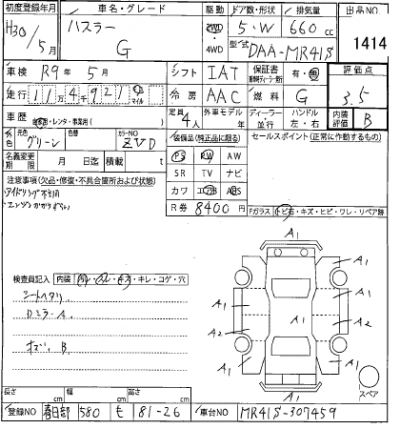 初度登録年月 車名・グレード 駆動 ドア数・形状 排気量 出品NO
H30/5月 ハスラー G 2WD 4WD 5・W 660cc 1414
型式 DAA-MR41S
車検 R9年5月 シフト IAT 保証書 有・無 評価点
走行 11万4千921 マイル 冷房 AAC 燃料 G 3.5
車歴 レンタ・事業用 定員 4人 外車モデル 年 ディーラー 並行 ハンドル 左・右 内装評価 B
色 グリーン 色替 カラーNO ZVD 装備(純正品に限る) セールスポイント(正常に作動するもの)
名義変更期限 月 日迄 積載量 t PS PW AW
注意事項(欠品・修復・不具合箇所および状態) SR TV ナビ
アイドリング不良 カワ エアB ABS
エンジンかからない R券 8400円 Fガラス トビ石・キズ・ヒビ・ワレ・リペア跡
A1
検査員記入 内装 キレ・コゲ・穴 A1 A1
シートヘタリ A1 A1
A2 A2
B A1 A1
A1 スペア
長さ cm 幅 cm 高さ cm
登録NO 春日部 580 も 81-26 車台NO MR41S-307459